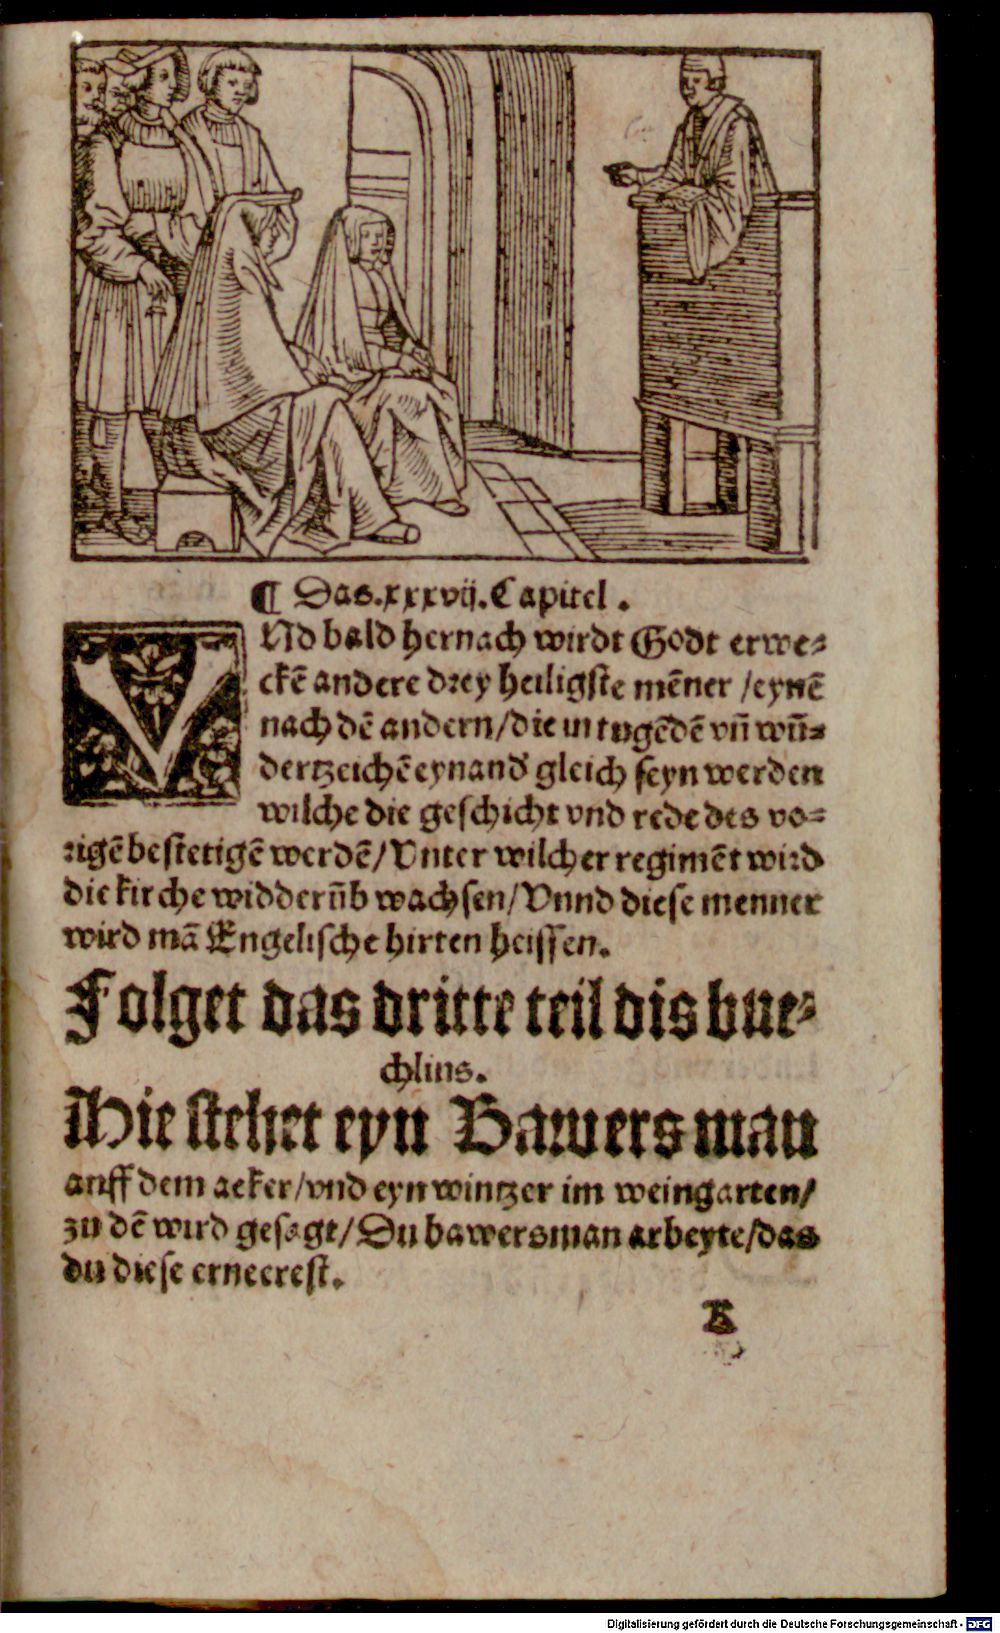 ¶ Das.xxxvij.Capitel.
VNd bald hernach wirdt Godt erwe-
ckē andere drey heiligste mēner /eynē
nach dē andern/die in tugēdē vn̄ wū-
dertzeichē eynand̕ gleich seyn werden
wilche die geschicht vnd rede des vo-
rigē bestetigē werdē/Vnter wilcher regimēt wird
die kirche widderūb wachsen/Vnnd diese menner
wird mā Engelische hirten heissen.
Folget das dritte teil dis bue-
chlins.
Hie stehet eyn Bawersman
auff dem acker/vnd eyn wintzer im weingarten/
zu dē wird gesagt/Du bawersman arbeyte/das
du diese erneerest.
Digitalisierung gefördert durch die Deutsche Forschungsgemeinschaft - DFG